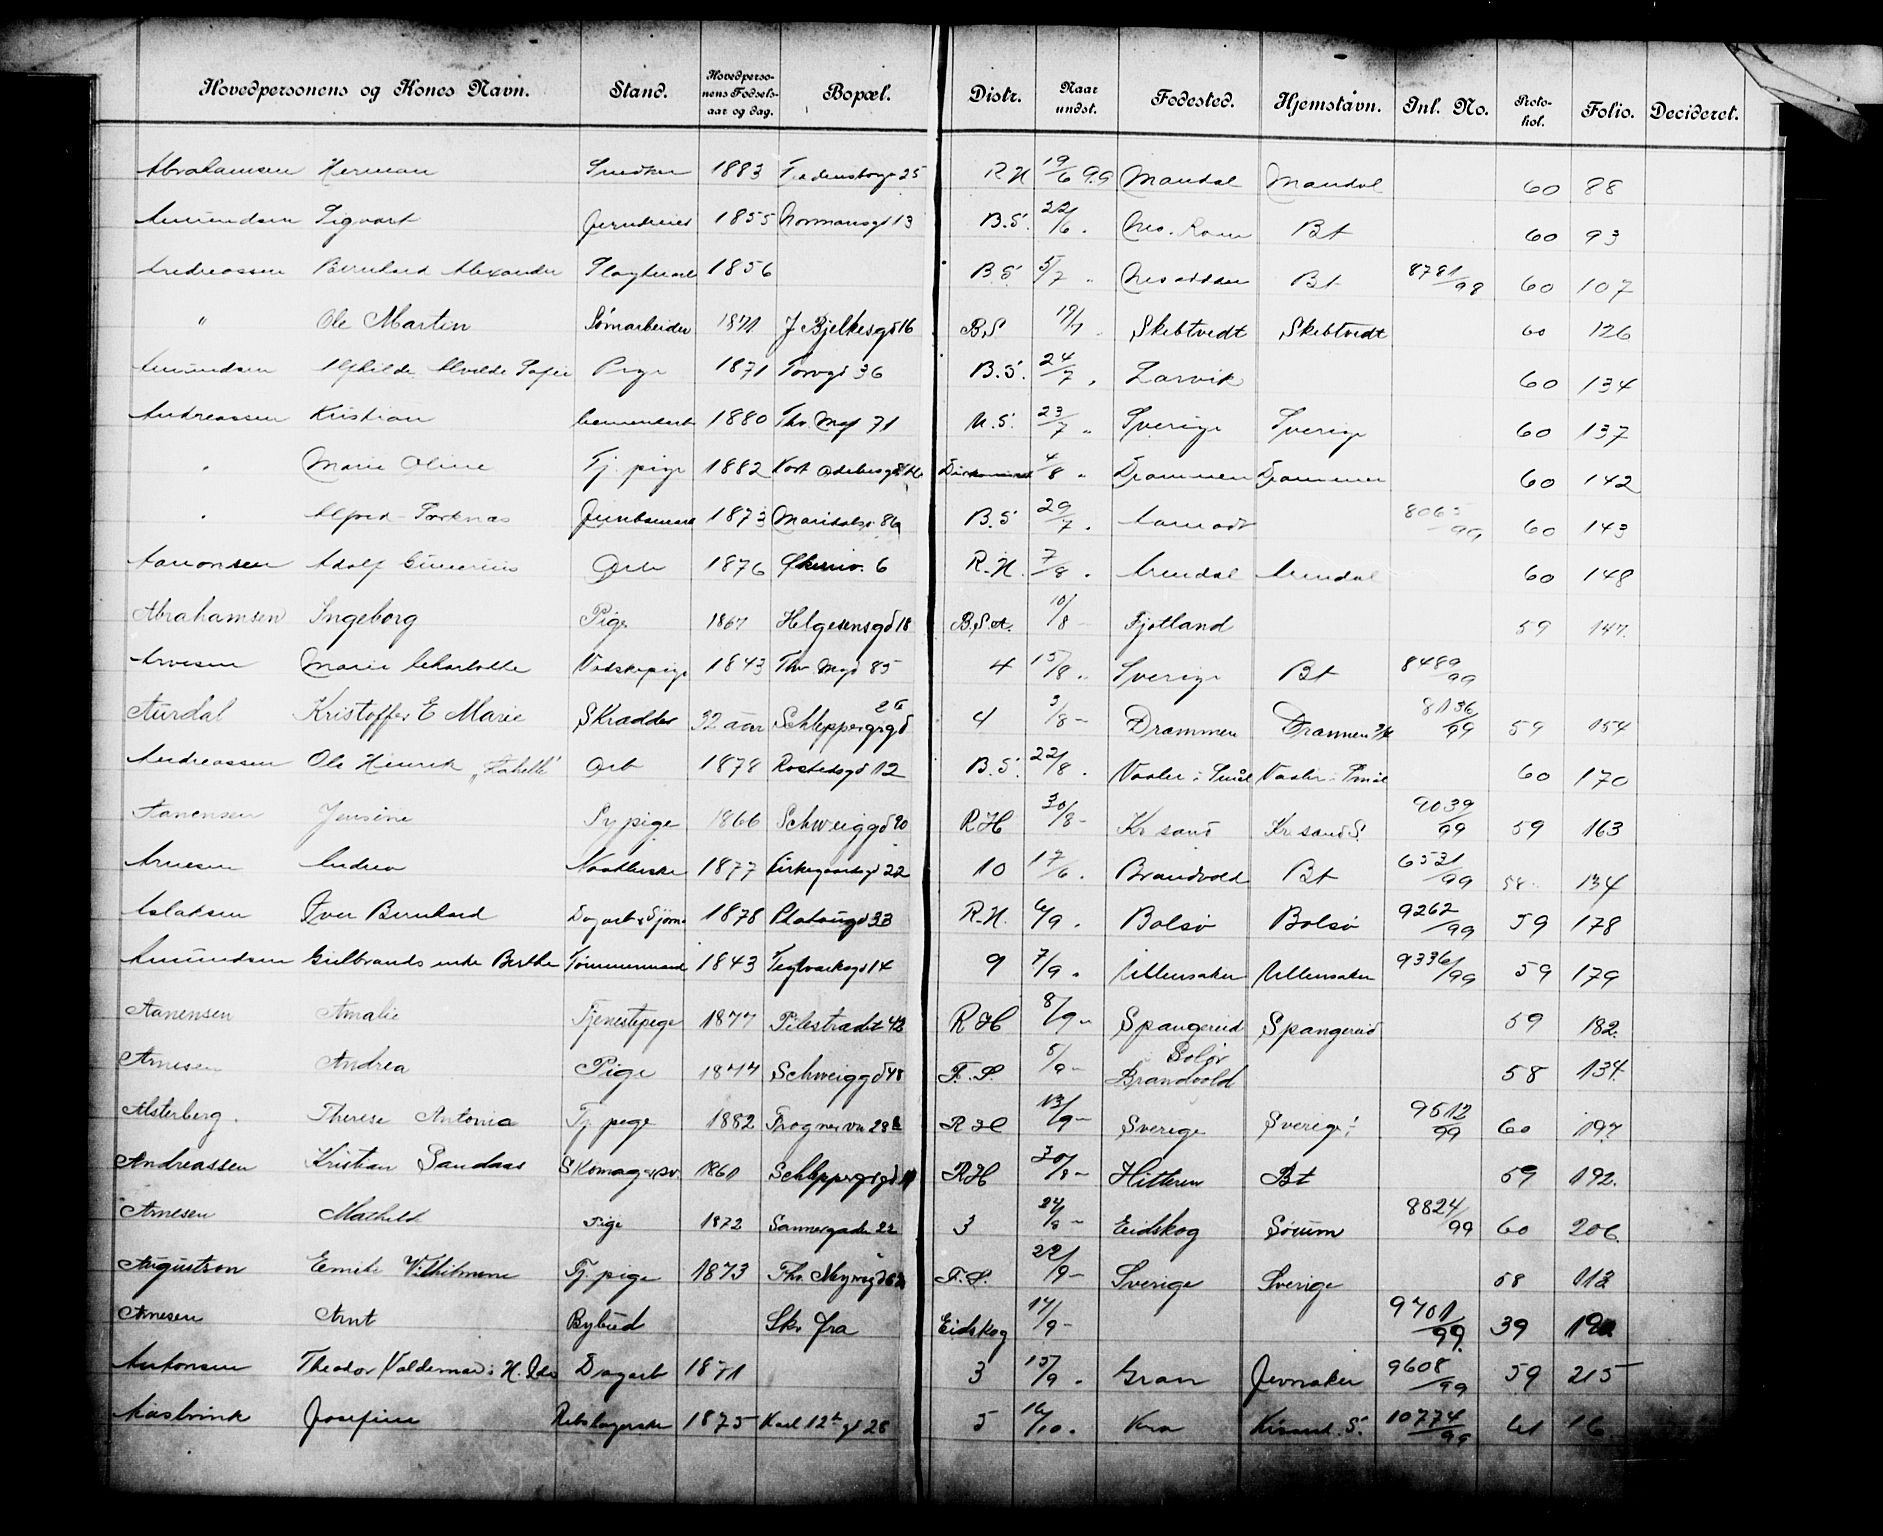 Hovedpersonens og Kones Navn. Stand. Hovedperso-nens Fødsels-aar og dag. Bopæl. Distr. Naar undst. Fødested. Hjemstavn. Inl. No. Proto-kol. Folio. Decideret.
Abrahamsen Herman Snedker 1883 25 R H 19/6 99 Mandal Mandal 60 88
Amundsen Sigvart 1855 Normansgd 13 B.S. 22/6 . Bt 60 93
Andreassen Bernhard Alexander 1856 B.S. 5/7 " Nesodden Bt 8781/98 60 107
" Ole Martin Sømarbeider 1871 J Bjelkesgd 16 B.S 19/7 . Skebtvedt Skebtvedt 60 126
Amundsen Alfhilde Alvilde Sofie Pige 1871 Torvgd 36 B.S. 24/7 . Larvik 60 134
Andreassen Kristian 1880 Thv. Mgd 71 U.S. 23/7 " Sverige Sverige 60 137
" Marie Oline Tj. pige 1882 Kort Adelersgd 4/8 " Drammen Drammen 60 142
" Alfred 1873 Maridalsv. 86a B.S 29/7 . 8065/99 60 143
Aanonsen Adolf Gunerius Arb 1876 6 R.H. 7/8 . Arendal Arendal 60 148
Abrahamsen Ingeborg Pige 1867 Helgesensgd 18 B.S.A. 10/8 - Fjotland 59 147.
Arvesen Marie Charlotte Vadskepige 1843 Thv Mgd 85 4 15/8 " Sverige Bt 8489/99
Aurdal Kristoffer E Marie Skrædder 32 aar Schleppergrgd 26 4 3/8 - Drammen Drammen 8136/99 59 154
Andreassen Ole Hinrik Arb 1878 Rostedsgd 12 B.S. 22/8 . Vaaler i Smål Vaaler i Smål 60 170
Aanensen Jensine Tj pige 1866 Schweiggd 90 R H 30/8 - Kr sand Kr sand S. 9039/99 59 163
Arnesen Andrea 1877 Kirkegaardsgd 22 10 17/6 . Brandvold Bt 6531/99 58. 134
Aslaksen Iver Bernhard Dagarb & Sjøm 1878 Platousgd 33 R.H. 6/9 . Bolsø Bolsø 9262/99 59 178
Amundsen Gulbrand Berthe Tømmermand 1843 Teglverksgd 14 9 7/9 . Ullensaker Ullensaker 9336/99 59 179
Aanensen Amalie Tjenestepige 1877 Pilestrædet 42 R H 8/9 - Spangereid Spangereid 59 182.
Arnesen Andrea Pige 1877 Schweiggd 48 F. S. 5/9 - Solør Brandvold 58 134.
Alsterberg. Therese Antonia Tj pige 1882 Frognervn 28 R H 13/9 - Sverige Sverige 9512/99 60 197.
Andreassen Kristian Sandaas Skomagersv. 1861 Schleppergrgd R H 30/8 - Hitteren Bt 59 192.
Arnesen Mathild Pige 1872 Sannergade 22 3 24/8 - Eidskog Sørum 8824/99 60 206.
Augustson Emelie Vilhilmine Tj pige 1873 Thv. Meyersgd F. S. 22/9 - Sverige Sverige 58 112
Arnesen Arnt Bybud Skr fra Eidskog 14/9 - 9701/99. 39
Antonsen Theodor Valdemar Dagarb 1871 3 15/9 . Gran Jevnaker 9608/99 59 215
Aasbrink Josefine 1875 Karl 12te gd 28 5 16/10 . Kra Krsand. S. 10774/99 61 16.